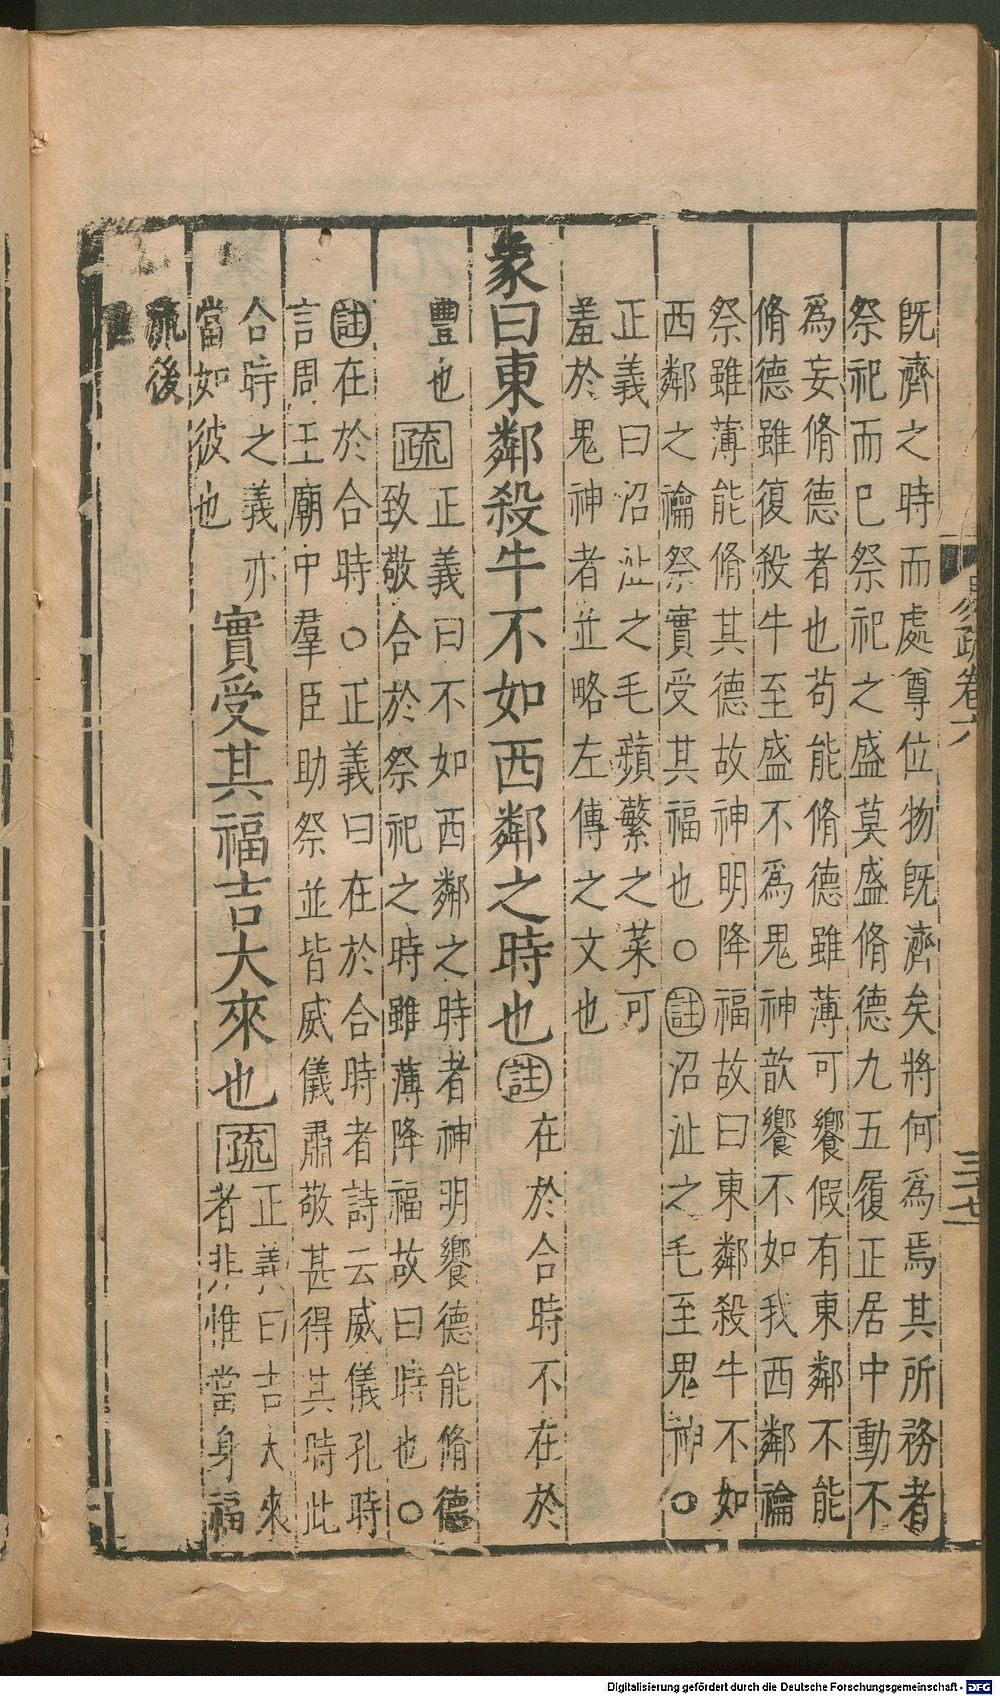 既濟之時而處尊位物既濟矣將何爲焉其所務者
祭祀而已祭祀之盛莫盛脩德九五履正居中動不
爲妄脩德者也苟能脩德雖薄可饗假有東鄰不能
脩德雖復殺牛至盛不爲鬼神歆饗不如我西鄰禴
祭雖薄能脩其德故神明降福故曰東鄰殺牛不如
西鄰之禴祭實受其福也○註沼沚之毛至鬼神○
正義曰沼沚之毛蘋蘩之菜可
羞於鬼神者並略左傳之文也
象曰東鄰殺牛不如西鄰之時也註在於合時不在於
豐也疏正義曰不如西鄰之時者神明饗德能脩德
致敬合於祭祀之時雖薄降福故曰時也○
註在於合時○正義曰在於合時者詩云威儀孔時
言周王廟中羣臣助祭並皆威儀肅敬甚得其時此
合時之義亦
當如彼也
實受其福吉大來也疏正義曰吉大來
者非惟當身福
流後
易疏卷六
三十七
Digitalisierung gefördert durch die Deutsche Forschungsgemeinschaft - DFG